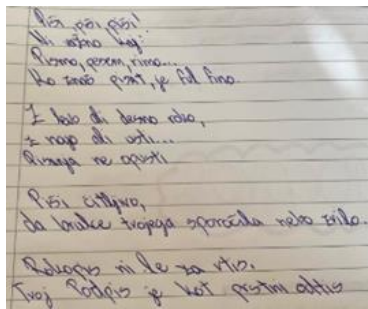 Piši, piši, piši!
Ni važno kaj:
Pismo, pesem, rimo...
Ko znaš pisat, je ful fino.
Z levo ali desno roko,
z nap ali
Pisanja ne opusti
Piši čitljivo,
da bralec tvojega sporočila nebo
Rokopis ni le za vtis.
Tvoj Podpis je kot prstni odtis